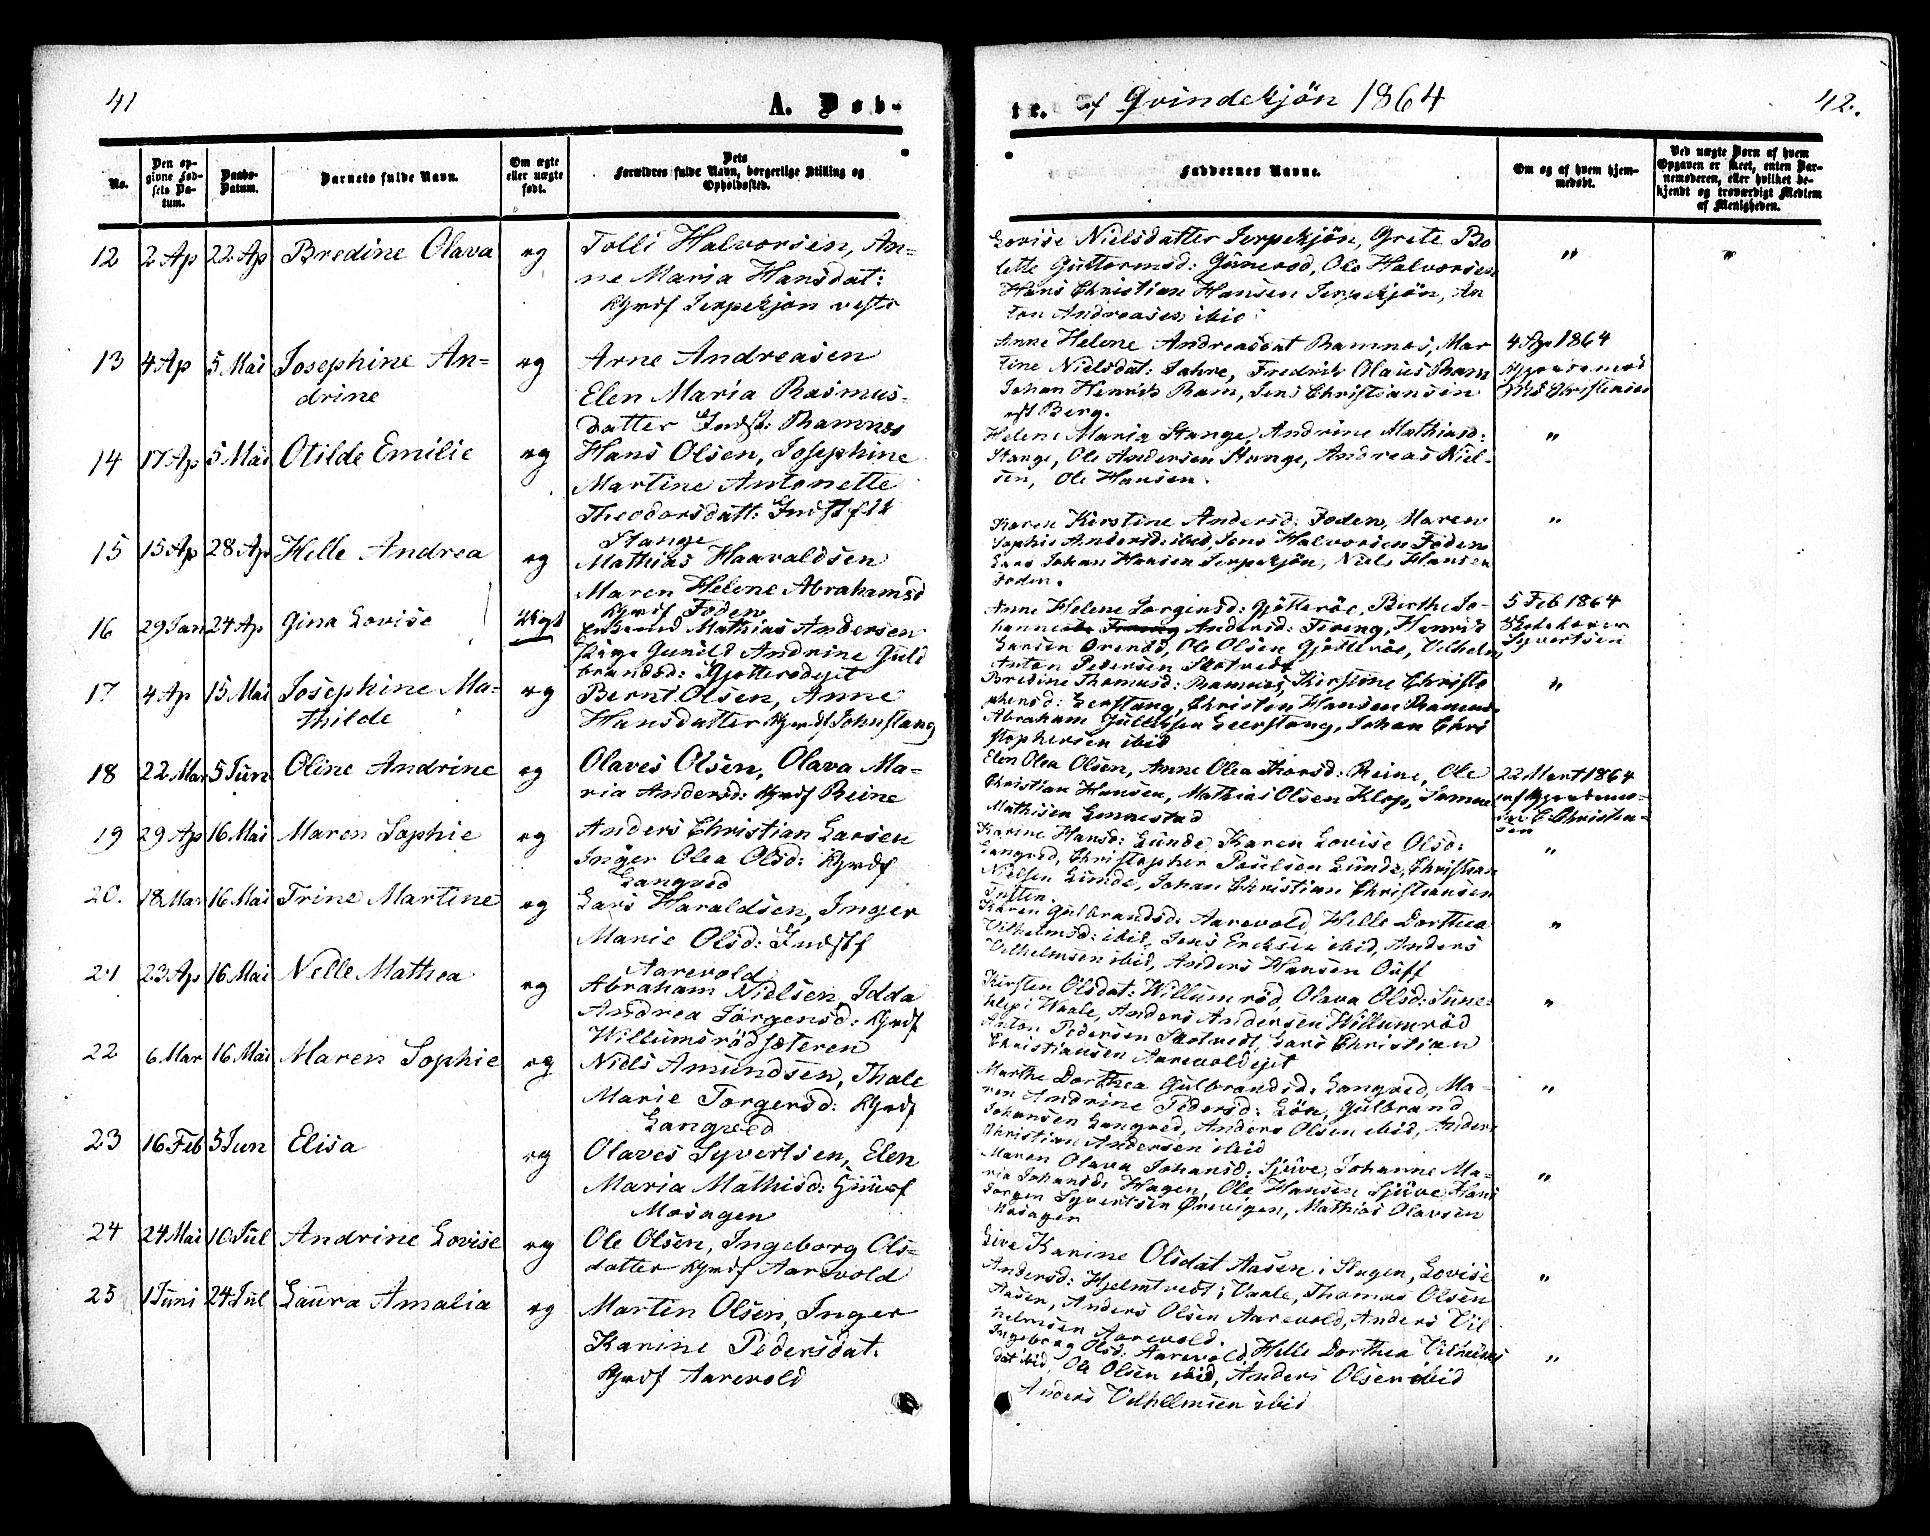 41
A. Døb-
No.
Den op-
givne Fød-
sels Da-
tum.
Daabs-
Datum.
Barnets fulde Navn.
Om ægte
eller uægte
født.
Dets
Forældres fulde Navn, borgerlige Stilling og
Opholdssted.
12 2 Ap 22 Ap Bredine Olava eg Tolli Halvorsen, An-
ne Maria Hansdat:
13 4 Ap 5 Mai Josephine An- eg Arne Andreasen
drine Elen Maria Rasmus-
datter Indst: Ramnes
14 17 Ap 5 Mai Otilde Emilie eg Hans Olsen, Josephine
Martine Antonette
Theodorsdatt:
Stange
15 15 Ap 28 Ap Helle Andrea eg Mathias Haavaldsen
Maren Helene Abrahamsd
Foden
16 29 Jan 24 Ap Gina Lovise Uegt Mathias Andersen
Pige Gunild Andrine Guld
brandsd:
17 4 Ap 15 Mai Josephine Ma- eg Bernt Olsen, Anne
thilde Hansdatter
18 22 Mar 5 Jun Oline Andrine eg Olaves Olsen, Olava Ma-
ria Andersd: Reine
19 29 Ap 16 Mai Maren Sophie eg Anders Christian Larsen
Inger Olea Olsd:
Langved
20. 18 Mar 16 Mai Trine Martine eg Lars Haraldsen, Inger
Marie Olsd: Indstf
Aarevold
21 23 Ap 16 Mai Nelle Mathea eg Abraham Nielsen, Idda
Andrea Jørgensd:
Willumsrød
22 6 Mar 16 Mai Maren Sophie eg Niels Amundsen, Thale
Marie Torgersd:
Langved
23 16 Feb 5 Jun Elisa eg Olaves Syvertsen, Elen
Maria Mathisd:
Mosagen
24 24 Mai 10 Jul Andrine Lovise eg Ole Olsen, Ingeborg Ols-
datter Aarevold
25 1 Juni 24 Jul Laura Amalia eg Martin Olsen, Inger
Karine Pedersdat:
Aarevold
te. af Qvindekjøn 1864 42.
Faddernes Navne.
Om og af hvem hjem-
medøbt.
Ved uægte Børn af hvem
Opgaven er skeet, enten Bar-
nemoderen, eller hvilket be-
kjendt og troværdigt Medlem
af Menigheden.
Lovise Nielsdatter Jerpekjøn, Grete Bo- " "
lette Guttormsd: Ole Halvorsen
Hans Christian Hansen Jerpekjøn, An
ton Andreasen ibid
Anne Helene Andreasdat Ramnes, Mar 4 Ap 1864
tine Nielsdat: Fredrik Olaus Ram
Johan Henrik Ram, Jens Christiansen
Berg.
Helene Maria Stange, Andrine Mathiasd: "
Stange, Ole Andersen Stange, Andreas Niel-
sen, Ole Hansen.
Karen Kirstine Andersd: Foden, Maren "
Sophie Andersd: ibid, Jens Halvorsen Foden
Lars Johan Hansen Jerpekjøn, Niels Hansen
Foden.
Anne Helene Jørgensd: Berthe Jo- 5 Feb 1864
hanne Andersd: Henrik
Larsen Ole Olsen Vilhelm Syvertsen
Anton Pedersen Skotvedt
Bredine Thomasd: Ramnes, Kirstine Christo "
phersd: Christen Hansen Ramnes
Abraham Johan Chri
stophersen ibid
Elen Olea Olsen, Anne Olea Thorsd: Reine, Ole 22 Mart 1864
Christian Hansen, Mathias Olsen Klop, Samuel
Mathisen Gennestad
Karine Hansd: Lunde, Karen Lovise Olsd: "
Langved, Christopher Poulsen Lunde, Christian
Nielsen Lunde, Johan Christian Christiansen
Karen Gulbrandsd: Aarevold, Helle Dorthea "
Vilhelmsd: ibid, Jens Ericksen ibid, Anders
Vilhelmsen ibid, Anders Hansen
Kirsten Olsdat: Willumrød, Olava Olsd: "
Anders Andersen Willumrød
Anton Pedersen Skotvedt, Lars Christian
Christiansen
Marthe Dorthea Gulbrandsd: Langved, Ma- "
ren Andrine Pedersd: Gulbrand
Johansen Langved, Anders Olsen ibid, Anders
Christian Andersen ibid
Maren Olava Johansd: Sjuve, Johanne Ma- "
ria Johansd: Hagen, Ole Hansen Sjuve, Hans
Jørgen Syvertsen Mathias Olavsen
Mosagen
Live Karine Olsdat Aasen i Skagen, Lovise "
Andersd: Hjelmtvedt i Vaale, Thomas Olsen
Aasen, Anders Olsen Aarevold, Anders Vil
helmsen Aarevold.
Ingeborg Olsd: Aarevold, Helle Dorthea Vilhelms "
dat ibid, Ole Olsen ibid, Anders Olsen ibid
Anders Vilhelmsen ibid